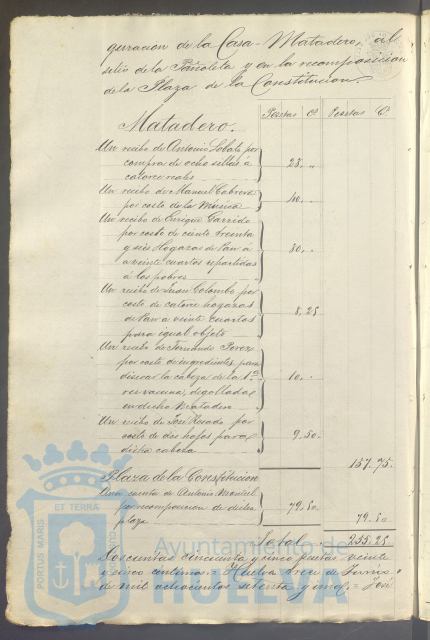 guracion de la Casa-Matadero, al
sitio de la Pañoleta y en la recomposicion
de la Plaza de la Constitucion.
Pesetas Cs Pesetas Cs
Matadero.
Un recibo de Antonio Lobato por
compra de ocho sillas á
catorce reales 28. "
Un recibo de Manuel Cabrera
por coste de la Musica 40. "
Un recibo de Enrique Garrido
por costo de ciento treinta
y seis Hogazas de Pan á
a veinte cuartos repartidas
á los pobres 80. "
Un recibo de Juan Colombo por
coste de catorce hogazas
de Pan a veinte cuartos
para igual objeto 8,25
Un recibo de Fernando Perez
por coste de ingredientes para
disecar la cabeza de la 1ª
res vacuna, degollada
en dicho Matadero 10. "
Un recibo de José Rosado por
coste de dos para
dicha cabeza 9.50.
157.75.
Plaza de la Constitucion
Una cuenta de Antonio
por recomposicion de dicha
plaza 79.50 79.50
Total 255.25
Doscientas cincuenta y cinco pesetas veinte
y cinco centimos. = Huelva trece de Junio
de mil ochocientos setenta y = José
PORTUS MARIS ET TERRÆ CUSTODIA
Ayuntamiento de
HUELVA